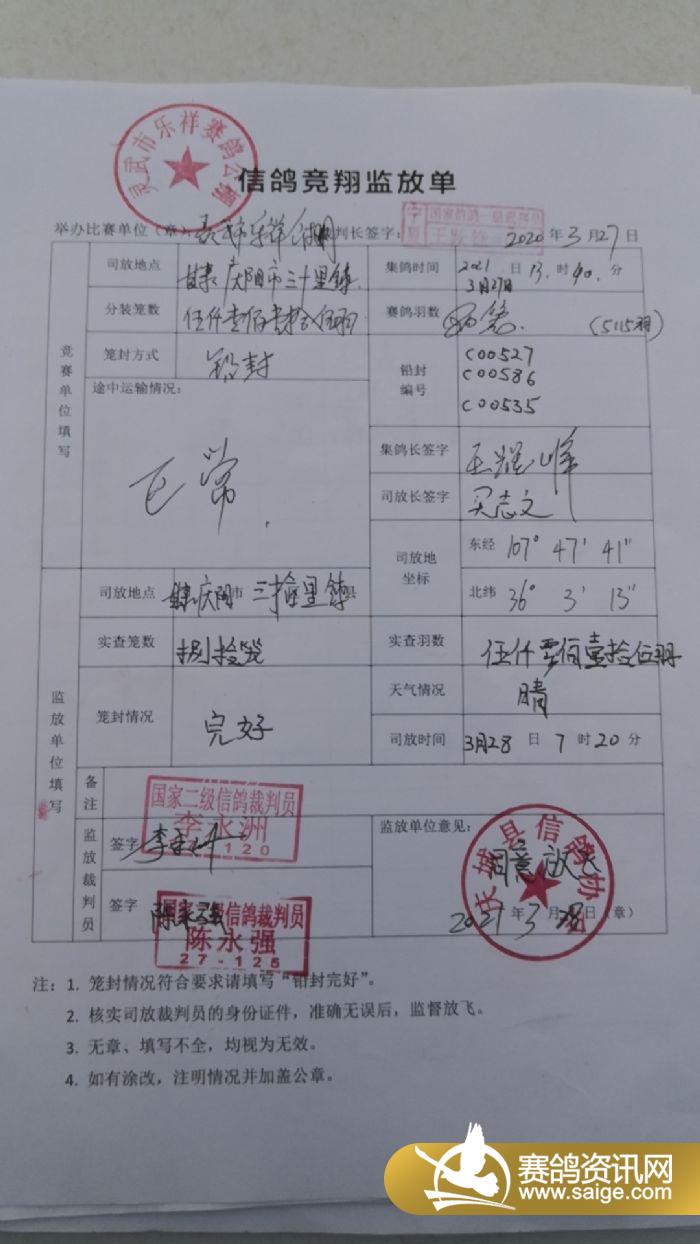 灵武市乐祥赛鸽公棚
信鸽竞翔监放单
举办比赛单位（章） 裁判长签字： 2020年3月27日
国家信鸽一级裁判员
竞赛单位填写
司放地点 甘肃庆阳市三十里镇 集鸽时间 2021 3月27日 日13时40分
分装笼数 伍仟壹佰壹拾伍羽 赛鸽羽数 （5115羽）
笼封方式 铅封 铅封编号 C00527
C00586
C00535
途中运输情况：
正常
集鸽长签字 王耀峰
司放长签字 买志文
司放地坐标 东经 107° 47' 41"
北纬 36° 3' 13"
监放单位填写
司放地点 甘肃庆阳市 三拾里镇县
实查笼数 捌拾笼 实查羽数 伍仟零佰壹拾伍羽
笼封情况 完好 天气情况 晴
司放时间 3月28日7时20分
备注
国家二级信鸽裁判员
李永洲
120
监放裁判员
签字 李永洲
签字 陈永强
国家二级信鸽裁判员
陈永强
27-125
监放单位意见：
同意放飞
庆城县信鸽协会
2021年3月28日（章）
注：1. 笼封情况符合要求请填写“铅封完好”。
2. 核实司放裁判员的身份证件，准确无误后，监督放飞。
3. 无章、填写不全，均视为无效。
4. 如有涂改，注明情况并加盖公章。
赛鸽资讯网
www.saige.com